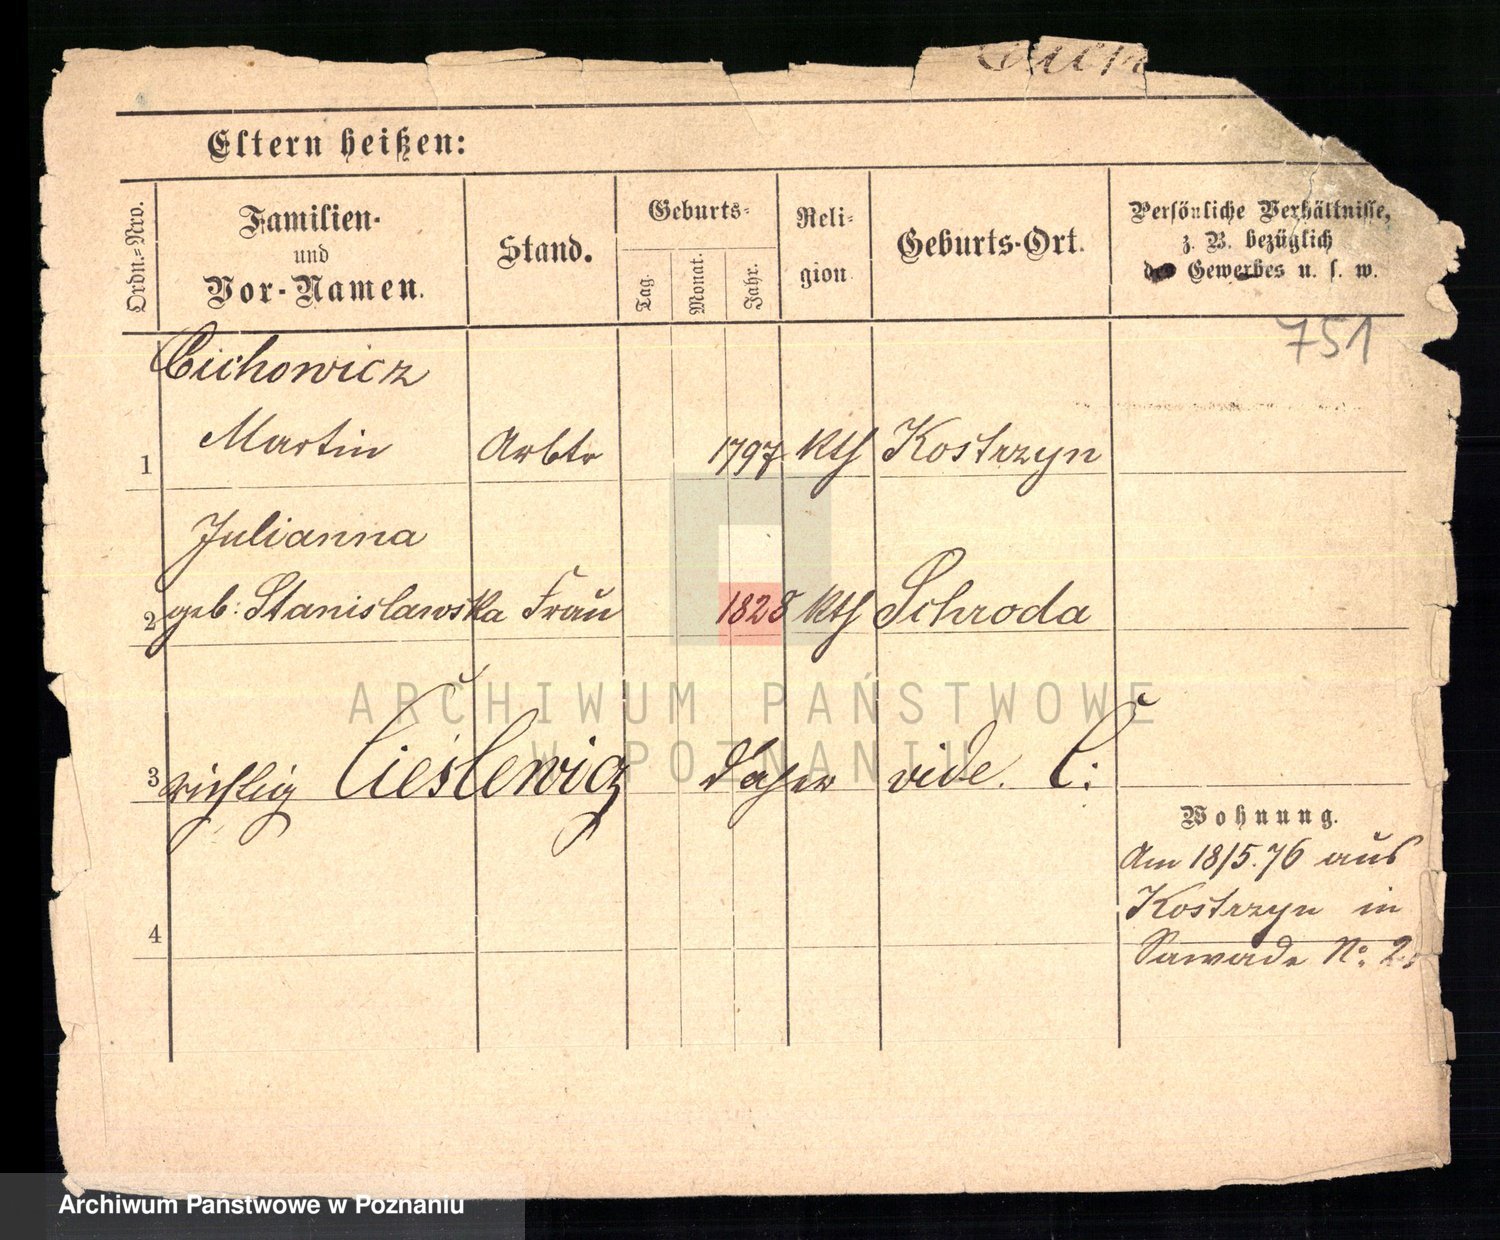 Eltern heißen:
Ordn.-Nro.
Familien-
und
Vor-Namen.
Stand.
Geburts-
Tag.
Monat.
Jahr.
Reli-
gion
Geburts-Ort.
Persönliche Verhältnisse,
z. B. bezüglich
des Gewerbes u. s. w.
751
Cichowicz
1 Martin Arbtr 1797 kth Kostrzyn
Julianna
2 geb: Stanislawska Frau 1828 kth Schroda
ARCHIWUM PAŃSTWOWE
W POZNANIU
3 richtig Cieślewicz daher vide. C:
Wohnung.
Am 18/5.76 aus
Kostrzyn in
4
Sawade No: 2
Archiwum Państwowe w Poznaniu